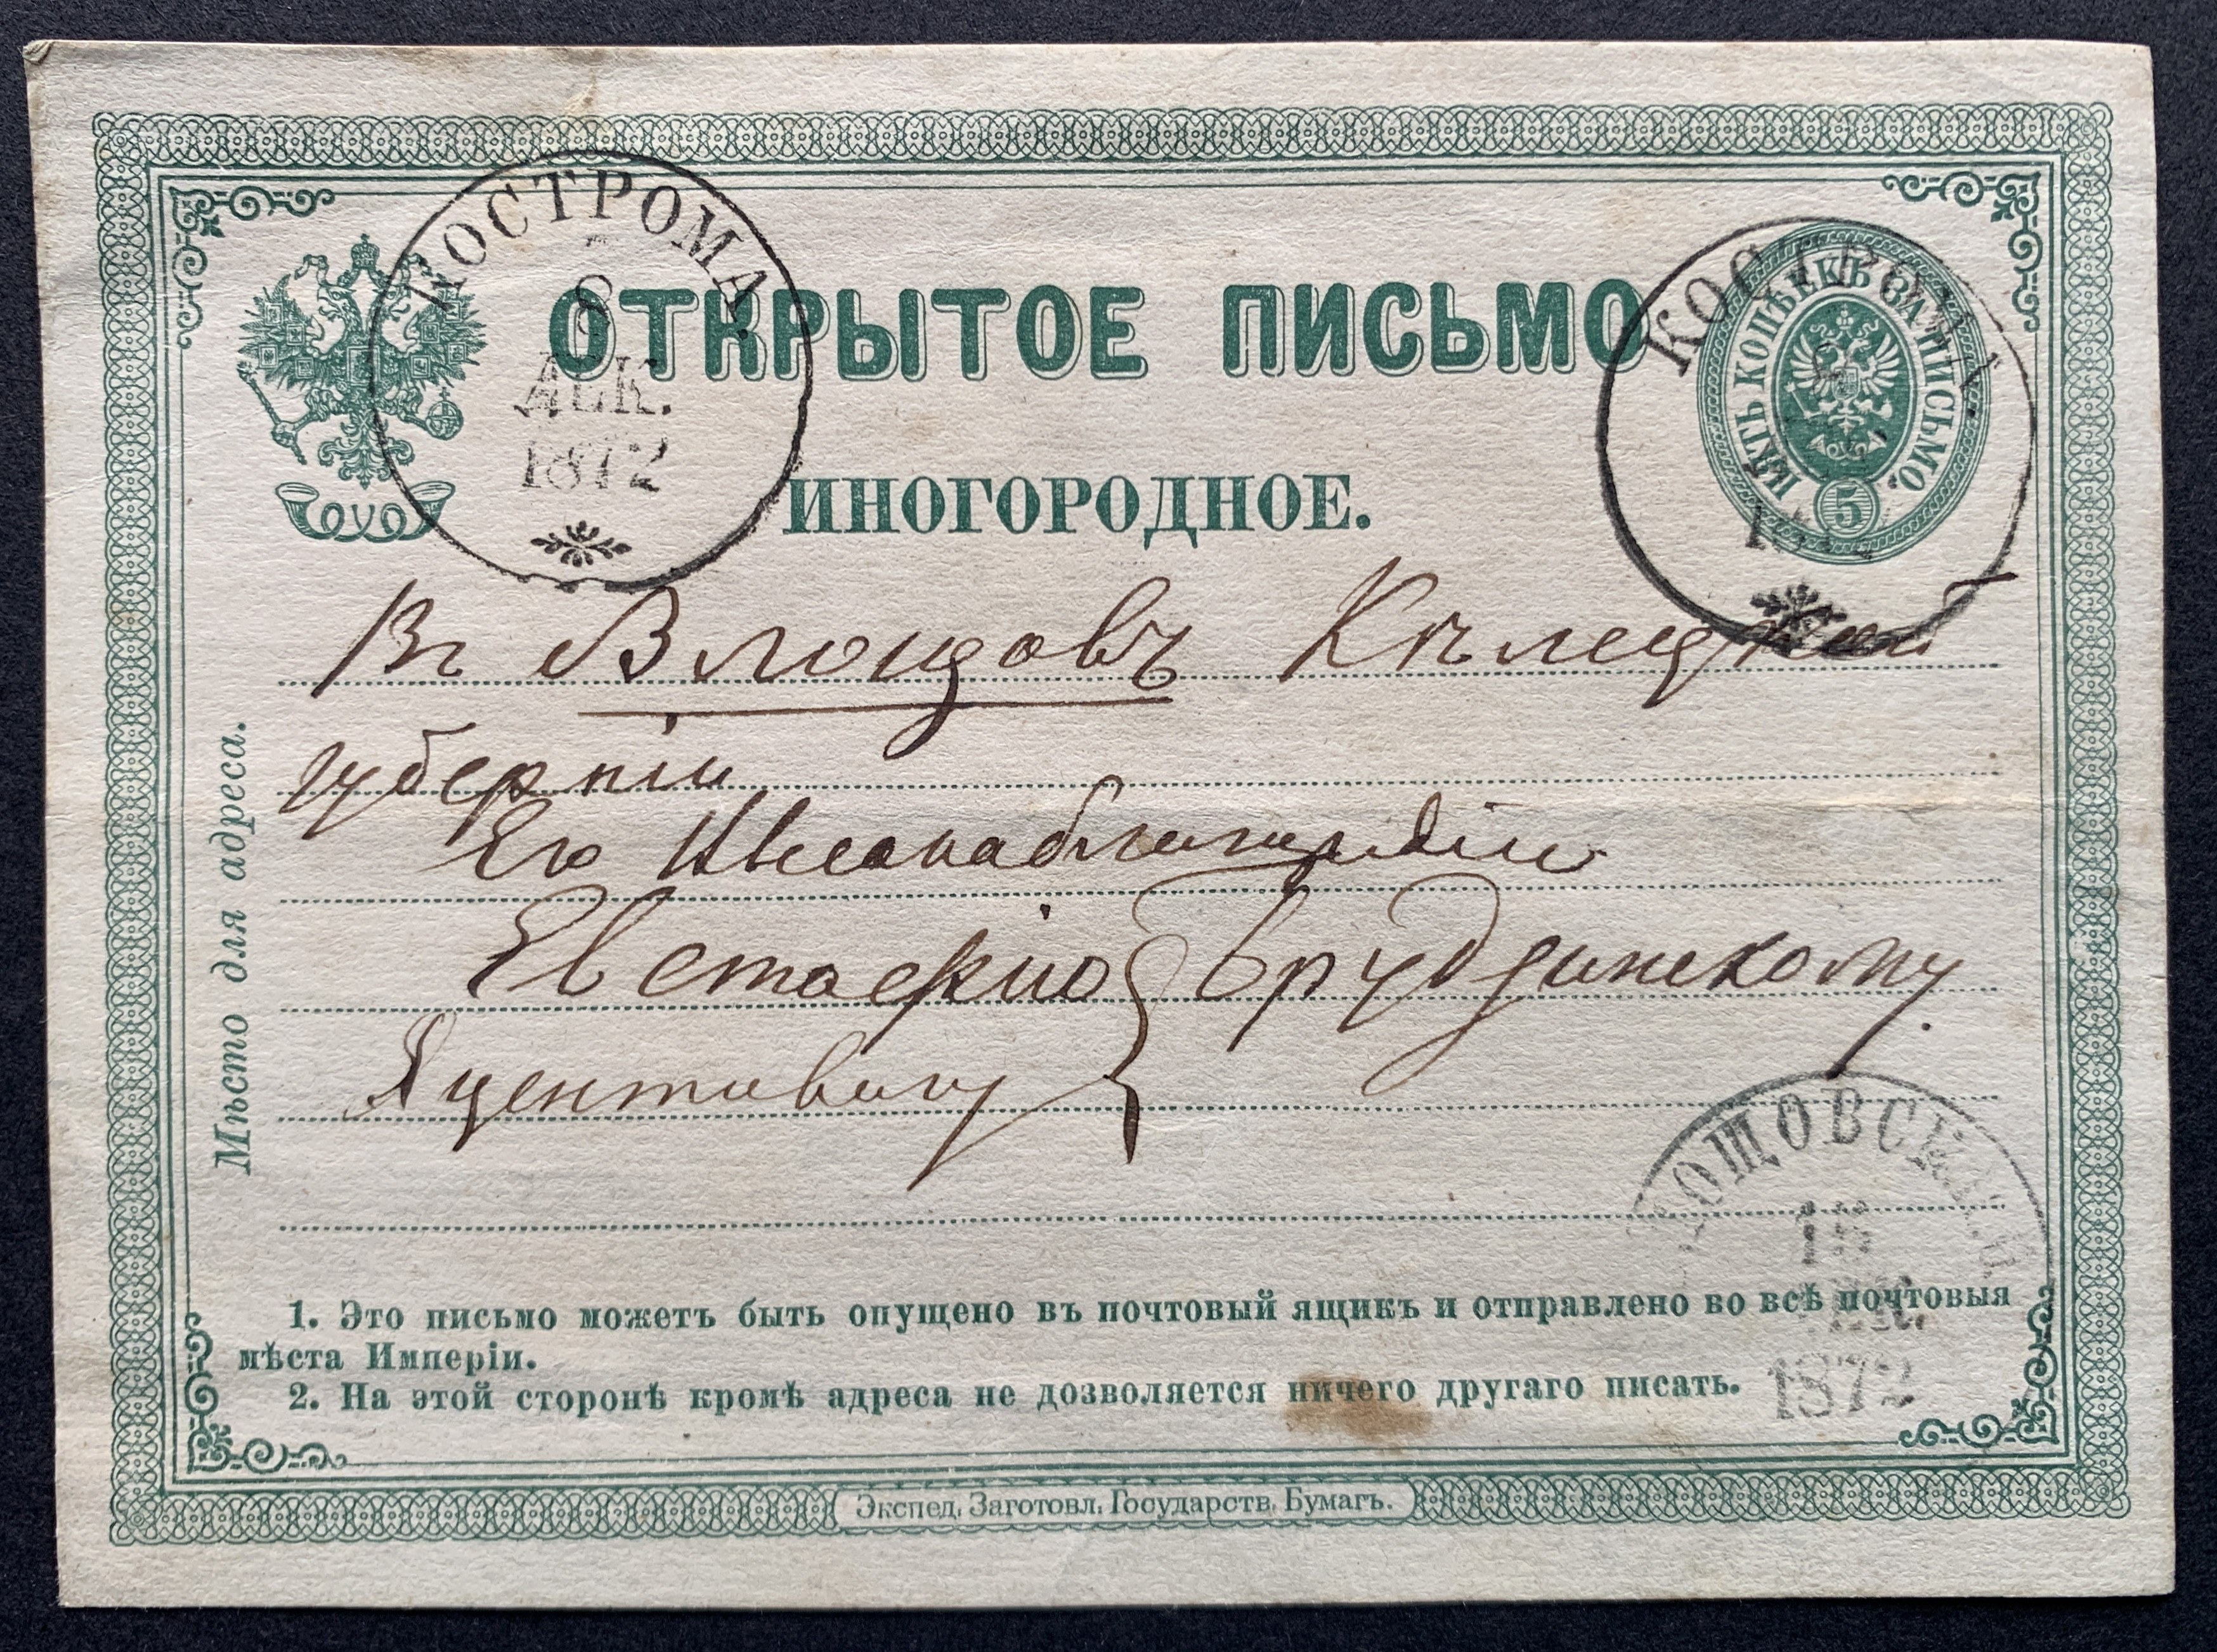 КОСТРОМА.
8
ДЕК.
1872
ОТКРЫТОЕ ПИСЬМО
ИНОГОРОДНОЕ.
КОСТРОМА.
ПЯТЬ КОПѢЕКЪ ЗА ПИСЬМО.
5
Въ Влощовъ Кѣлецкой
губерніи
Его
Евстафію Грудзинскому.
Яцентовичу
Мѣсто для адреса.
ЛОЩОВСК
15
ДЕК.
1872
1. Это письмо можетъ быть опущено въ почтовый ящикъ и отправлено во всѣ почтовыя
мѣста Имперіи.
2. На этой сторонѣ кромѣ адреса не дозволяется ничего другаго писать.
Экспед. Заготовл. Государств. Бумагъ.